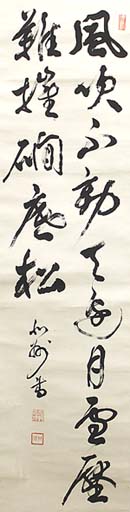 風吹不動天邊月雪壓
難摧磵底松